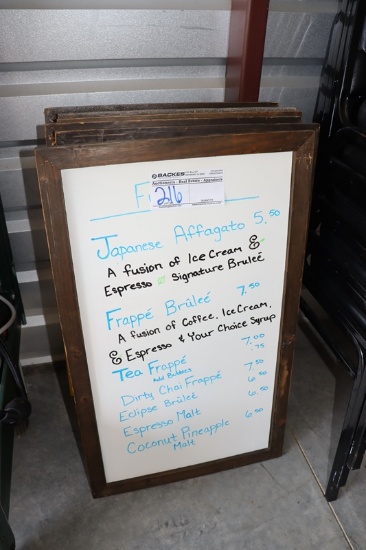 BACKES
Auctioneers - Real Estate - Appraisers
216
F
Japanese Affagato 5.50
A fusion of Ice Cream &
Espresso Signature Bruleé
Frappé Brûleé 7.50
A fusion of Coffee, Ice Cream,
& Espresso & Your Choice Syrup
Tea Frappé 7.00
Add Bobbles .75
Dirty Chai Frappé 7.50
Eclipse Brûleé 6.50
Espresso Malt 6.50
Coconut Pineapple 6.50
Malt